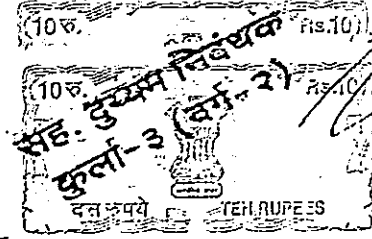 (10रु. Rs.10)
(10रु. Rs.10)
सह. दुय्यम निबंधक
कुर्ला-३ (वर्ग-२)
दस रुपये TEN RUPEES